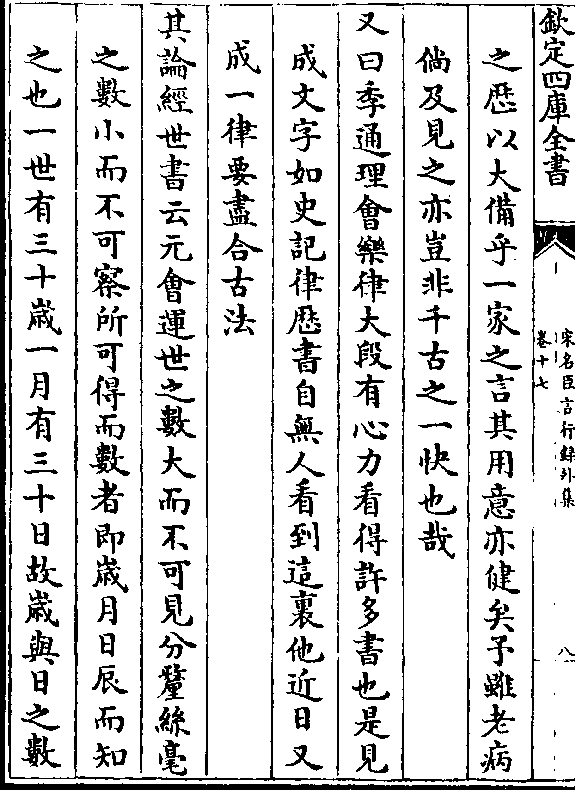 欽定四庫全書
宋名臣言行錄外集
卷十七
八
之歴以大備乎一家之言其用意亦健矣予雖老病
倘及見之亦豈非千古之一快也哉
又曰季通理會樂律大段有心力看得許多書也是見
成文字如史記律歴書自無人看到這裏他近日又
成一律要盡合古法
其論經世書云元會運世之數大而不可見分釐絲毫
之數小而不可察所可得而數者即歳月日辰而知
之也一世有三十歳一月有三十日故歳與日之數